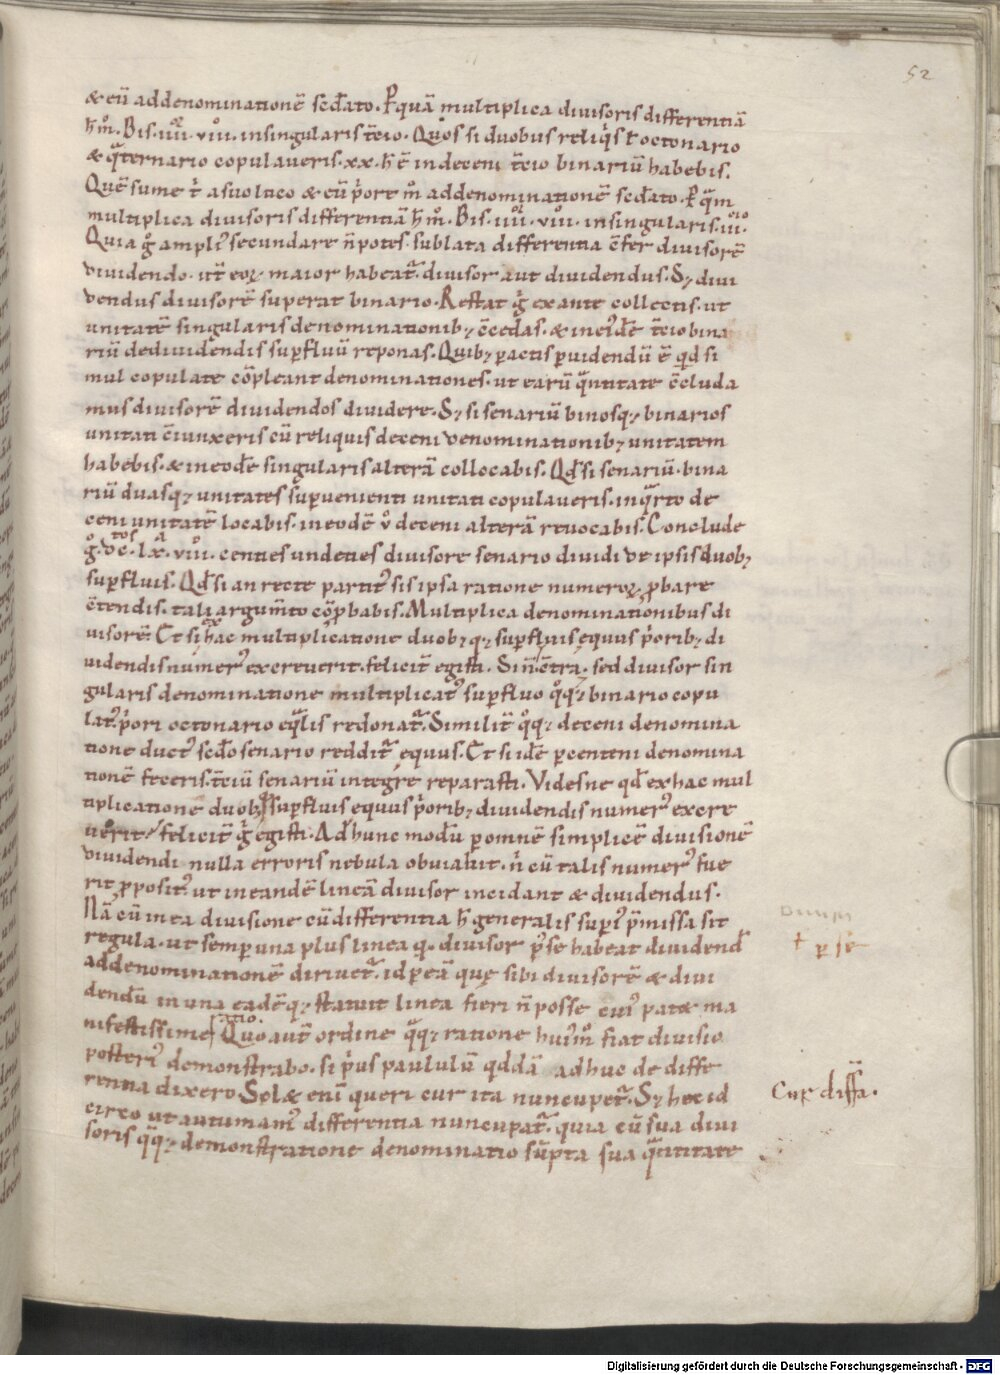 52
& cū addenominationē scďato. Ꝑquā multiplica diuisoris differentiā
h̄m̊. Bis. iiii. viii. insingularis t̄cio. Quos si duobus reliq̇s ł octonario
& q̄ternario copulaueris. xx. h̄ ē indeceni t̄cio binariū habebis.
Quē sume ī asuo loco & cū p̄ore m̊ addenominationē scďato. Ꝑ q̄m
multiplica diuisoris differentiā h̄m̊. Bis. iiii. viii. insingularis. iii.
Quia g̊ ampli⁹ secundare n̄ potes. sublata differentia c̄fer diuisorē
diuidendo. ut̄ eoꝝ maior habeat̄. diuisor aut diuidendus. Sꝫ diui
dendus diuisorē superat binario. Restat g̊ ex ante collectis. ut
unitatē singularis denominationibꝫ c̄cedas. & ineiďē t̄cio bina
riū dediuidendis suꝑfluū reponas. Quibꝫ ꝑactis ꝑuidendū ē qď si
mul copulate cōpleant denominationes. ut earū q̄ntitate c̄cluda
mus diuisorē diuidendos diuidere. Sꝫ si senariū binosqꝫ binarios
unitati c̄iunxeris cū reliquis deceni denominationibꝫ unitatem
habebis. & ineodē singularis alterā collocabis. Qď si senariū. bina
riū duasqꝫ unitates suꝑuenienti unitati copulaueris. inq̄rto de
ceni unitatē locabis. ineodē v̊ deceni alterā reuocabis. Conclude
g̊. dc. lx. viii. centies undecies diuisore senario diuidi ut ipsis duobꝫ
suꝑfluis. Qď si an recte partit⁹ sis ipsa ratione numeroꝝ ꝓbare
c̄tendis. tali argum̄to cōꝓbabis. Multiplica denominationibus di
uisorē. Et si hac multiplicatione duobꝫ qꝫ suꝑfluis equus p̄oribꝫ di
uidendis numer⁹ excreuerit. felicit̄ egisti. Sin c̄tra. sed diuisor sin
gularis denominatione multiplicat⁹ suꝑfluo q̊qꝫ binario copu
lat⁹. p̄ori octonario eq̄lis redonat̄. Similit̄ q̊qꝫ deceni denomina
tione duct⁹ scďo senario reddit̄ equus. Et si idē ꝑcenteni denomina
tionē feceris. t̄ciū senariū integre reparasti. Videsne qď ex hac mul
tiplicatione duobꝫ suꝑfluis equus p̄oribꝫ diuidendis numer⁹ excre
uerit. felicit̄ g̊ egisti. Ad hunc modū ꝑ omnē simplicē diuisionē
diuidendi nulla erroris nebula obuiabit. n̄ cū talis numer⁹ fue
rit ꝓposit⁹ ut ineandē lineā diuisor incidant & diuidendus.
Nā cū inea diuisione cū differentia h̄ generalis suꝑi⁹ p̄missa sit
regula. ut semꝑ una plus linea q̄ diuisor p̄ se habeat diuidend̄
addenominationē diriuet̄. id ꝑ eā quę sibi diuisorē & diui
dendū in una eadēqꝫ statuit linea fieri n̄ posse cui⁹ patæ ma
nifestissime. Quo aut̄ ordine q̄qꝫ ratione hui⁹m̊ fiat diuisio
posteri⁹ demonstrabo. si p̄us paululū qddā adhuc de diffe
rentia dixero. Sol& enī queri cur ita nuncupet̄. Sꝫ hec id
circo ut autumam⁹ differentia nuncupat̄. quia cū sua diui
Cur diffā.
soris q̄qꝫ demonstratione denominatio sūpta sua q̄ntitate